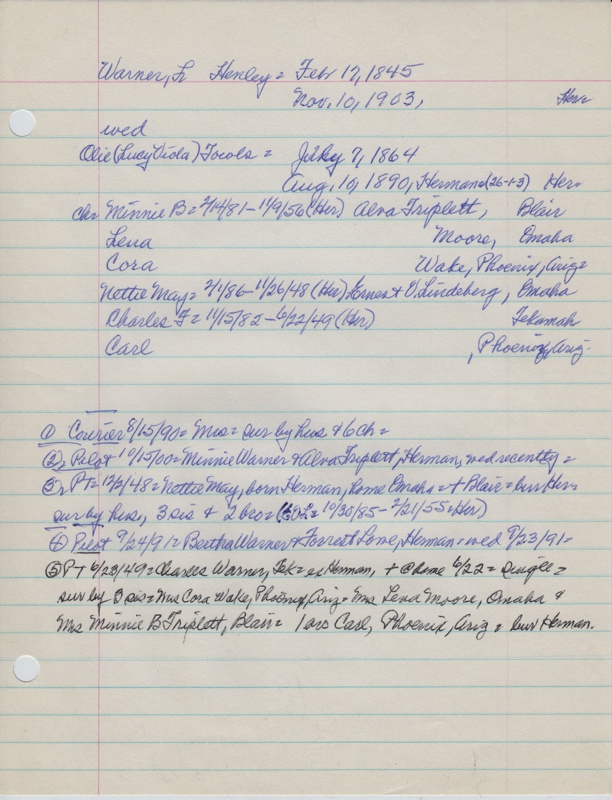 Warner, L Henley = Feb 17, 1845
Nov. 10, 1903, Her=
wed
Olie (Lucy Viola) Fowls = July 7, 1864
Aug. 10, 1890, Herman (26-1-3) Her=
chr Minnie B = 2/14/81 - 11/9/56 (Her) Alva Triplett, Blair
Lena Moore, Omaha
Cora Wake, Phoenix, Ariz=
Nettie May = 2/1/86 - 11/26/48 (Her) Ernest V. Lindeberg, Omaha
Charles F = 11/15/82 - 6/22/49 (Her) Tekamah
Carl , Phoenix, Ariz-
① Courier 8/15/90 = Mrs = sur by hus & 6 ch =
② Pilot 10/15/00 = Minnie Warner & Alva Triplett, Herman, wed recently =
③ PT = 12/2/48 = Nettie May, born Herman, home Omaha = + Blair = bur Her=
sur by hus, 3 sis & 2 bro = ( 10/30/85 - 2/21/55 = Her)
④ Pilot 9/24/91 = Bertha Warner & Forrest Lowe, Herman = wed 9/23/91=
⑤ PT 6/23/49 = Charles Warner, Tek = ex Herman, + @ home 6/22 = single =
sur by 3 sis = Mrs Cora Wake, Phoenix, Ariz = Mrs Lena Moore, Omaha &
Mrs Minnie B Triplett, Blair = 1 bro Carl, Phoenix, Ariz = bur Herman.